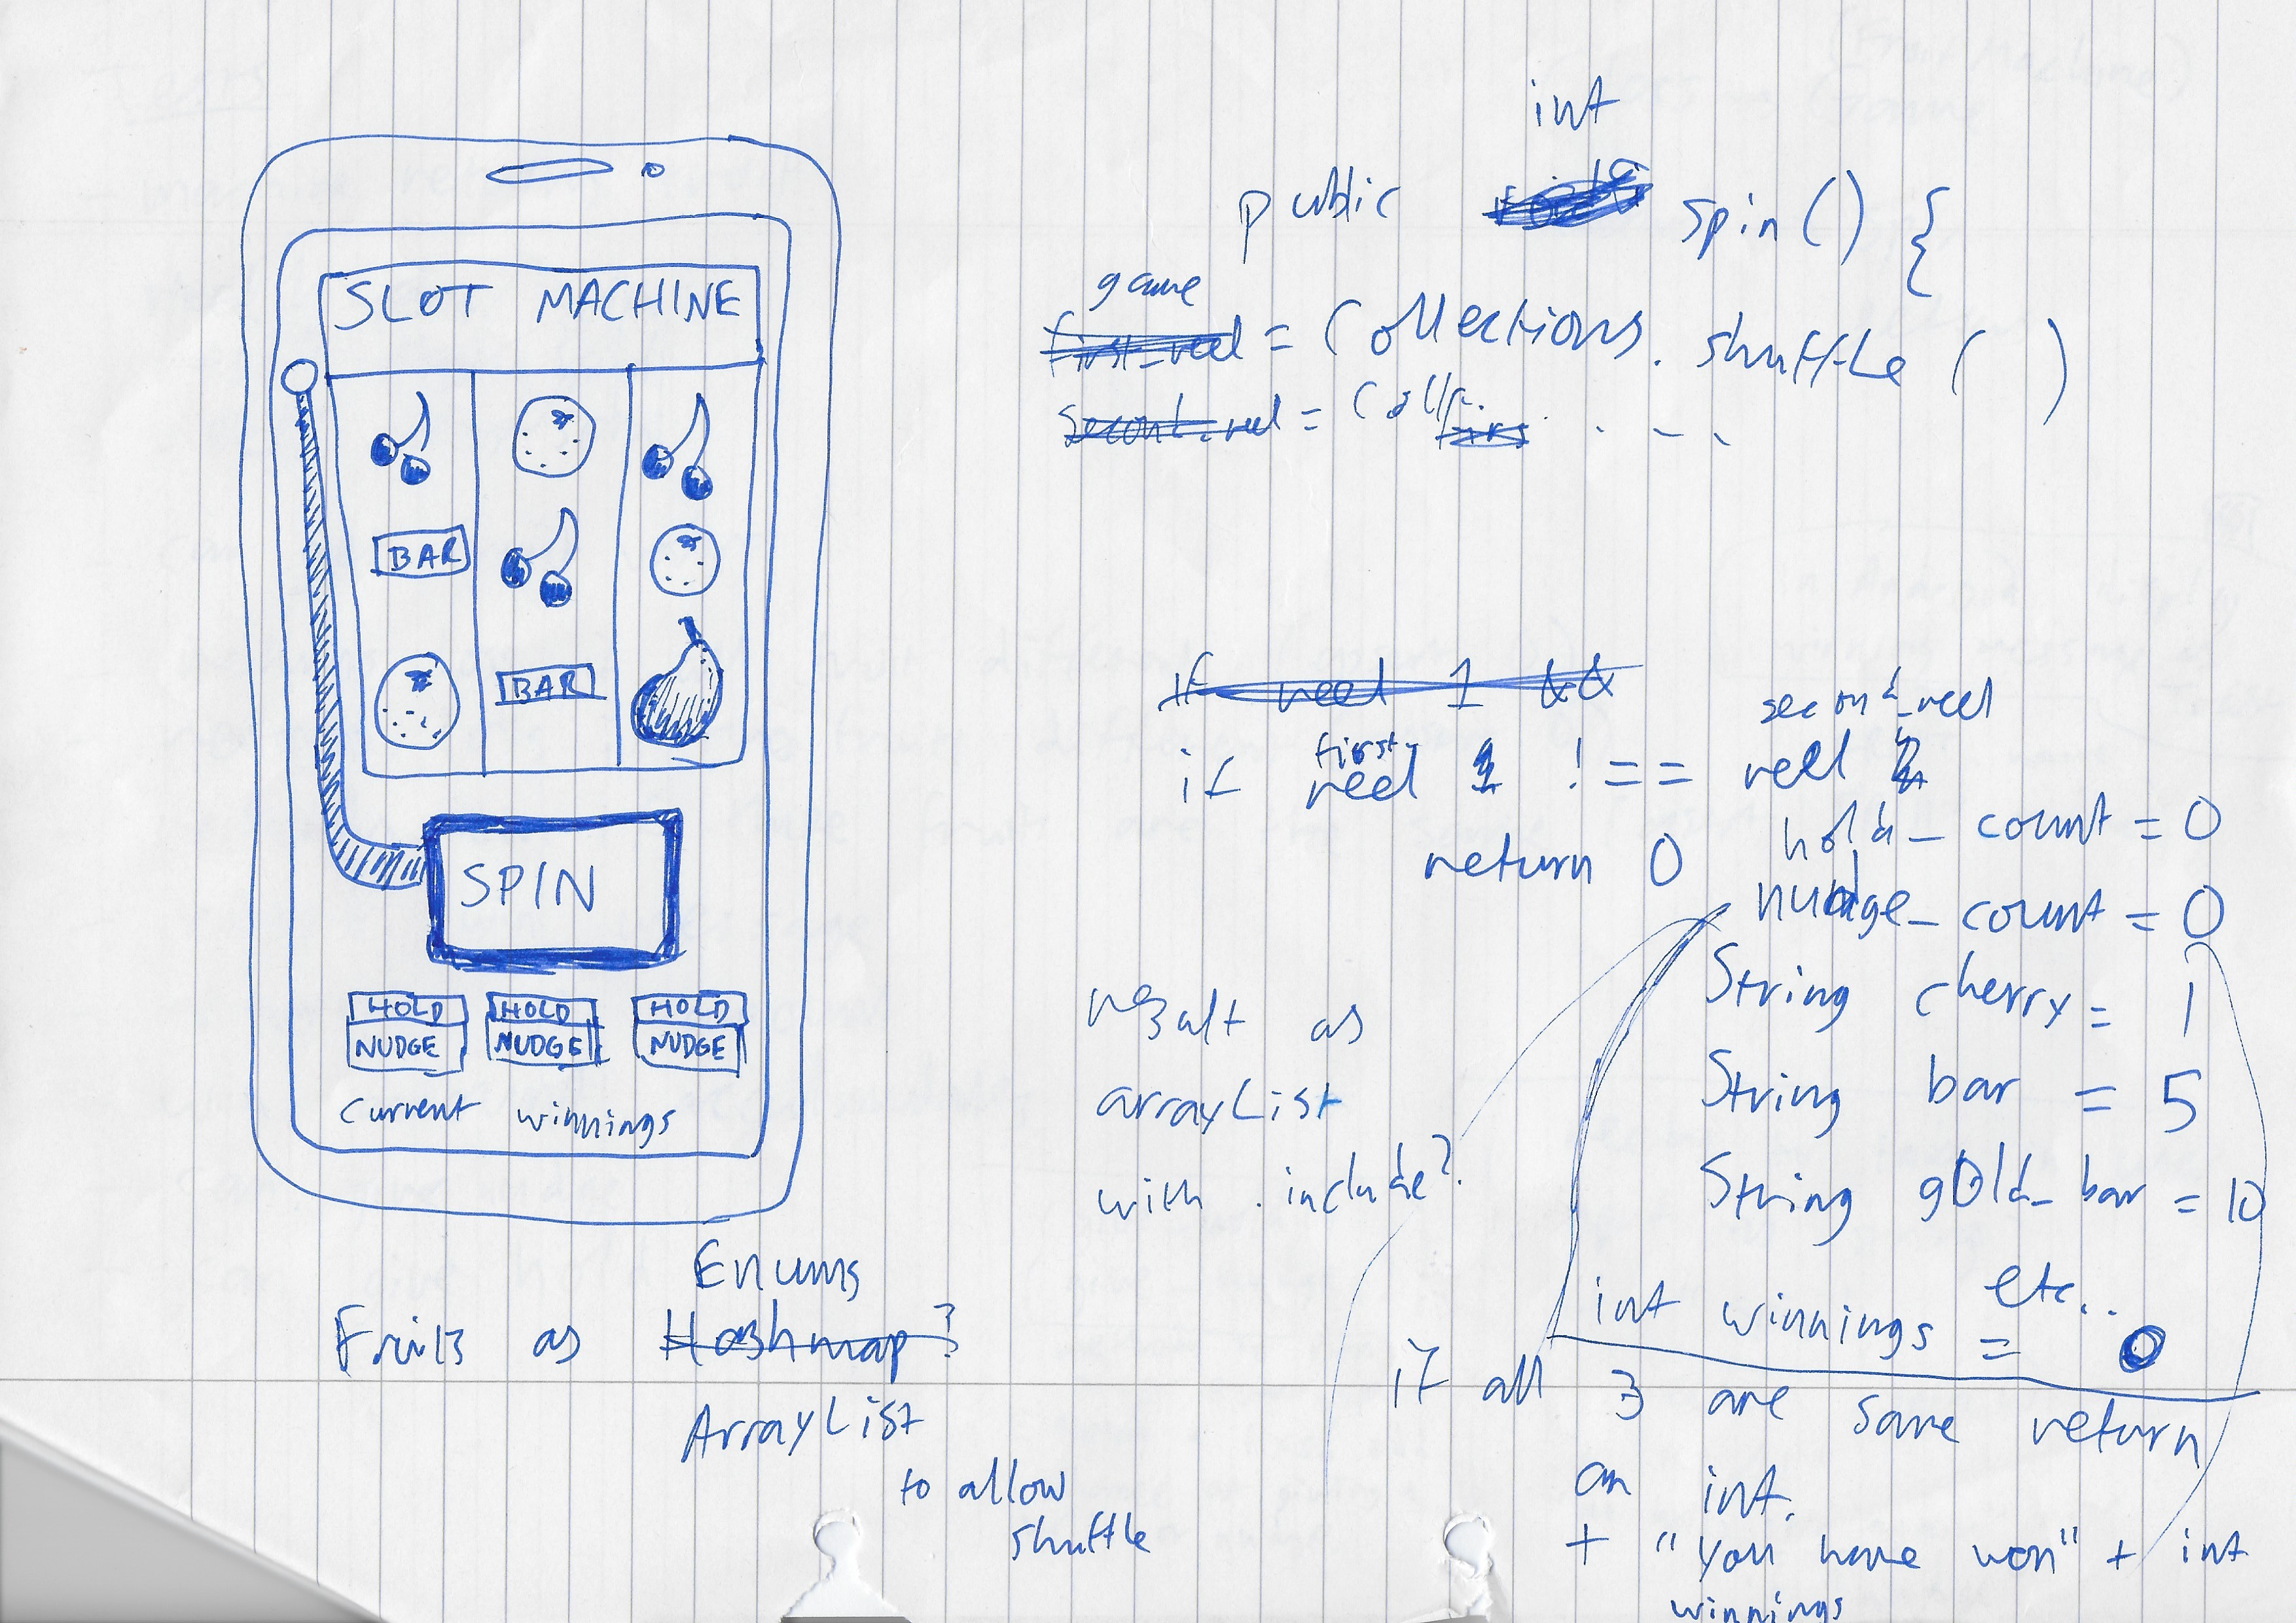 SLOT MACHINE
BAR
BAR
SPIN
HOLD HOLD HOLD
NUDGE NUDGE NUDGE
current winnings
Enums
Fruits as Hashmap?
ArrayList
to allow
shuffle
int
public void spin() {
game
first_reel = Collections. shuffle ( )
second_reel = Coll
if reel 1 &&
second_reel
first
if reel 1 !== reel 2
return 0
hold_ count = 0
nudge_ count = 0
String cherry = 1
String bar = 5
String gold_ bar = 10
etc..
int winnings = 0
result as
arrayList
with .include?
if all 3 are same return
an int.
+ "you have won" + int
winnings